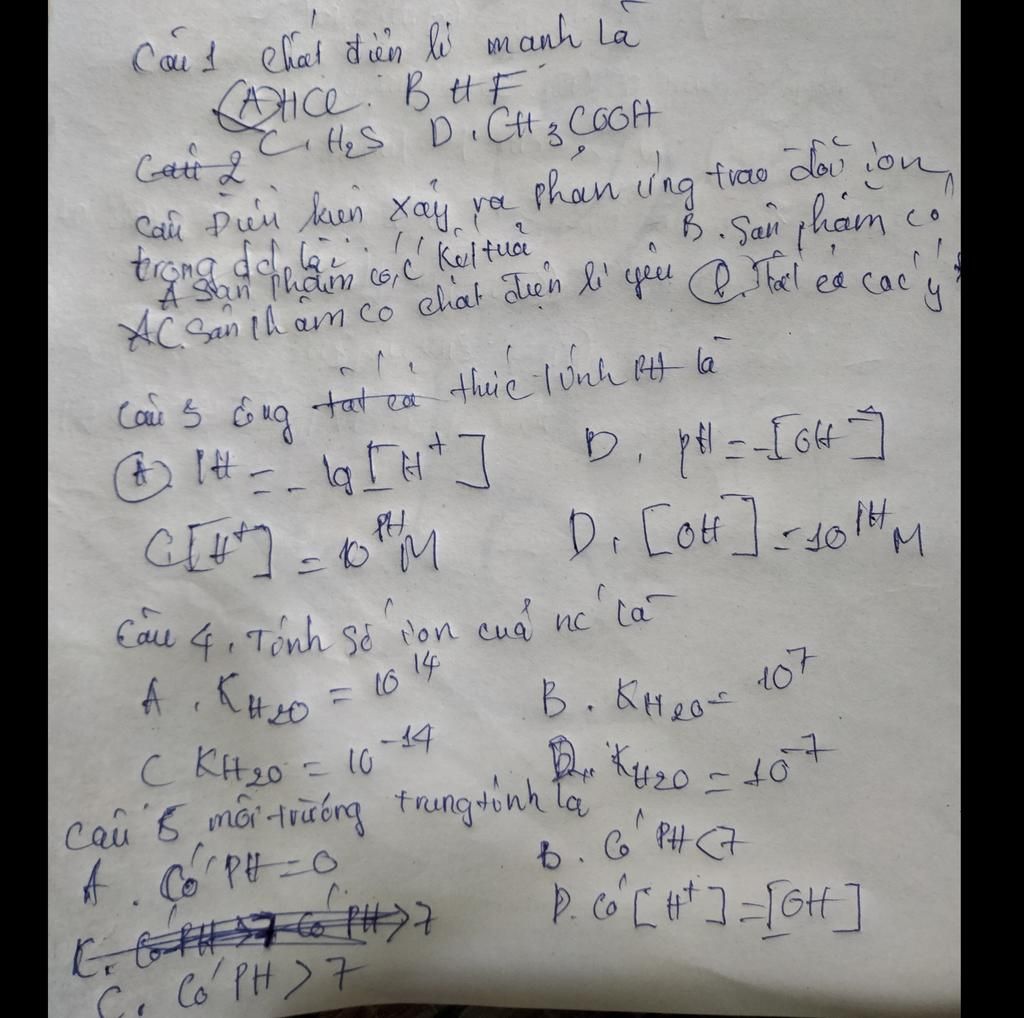 Câu 1 chất điện li mạnh là
A HCl. B HF
C. H₂S D. CH₃COOH
Câu 2
câu Điều kiện xảy ra phản ứng trao đổi ion
trong dd là: B. Sản phẩm có
A Sản phẩm có kết tủa
C. Sản phẩm có chất điện li yếu D. Tất cả các ý
Câu 3 công tất cả thức tính PH là
A PH = - lg [H⁺] D. pH = -[OH⁻]
C [H⁺] = 10^PH M D. [OH⁻] = 10^PH M
Câu 4. Tính số ion của nc là
A. K H₂O = 10¹⁴ B. K H₂O = 10⁷
C K H₂O = 10⁻¹⁴ D. K H₂O = 10⁻⁷
Câu 5 môi trường trung tính là
A. Có PH = 0 B. Có PH < 7
C. Có PH > 7 Có PH > 7 D. Có [H⁺] = [OH]
C. Có PH > 7